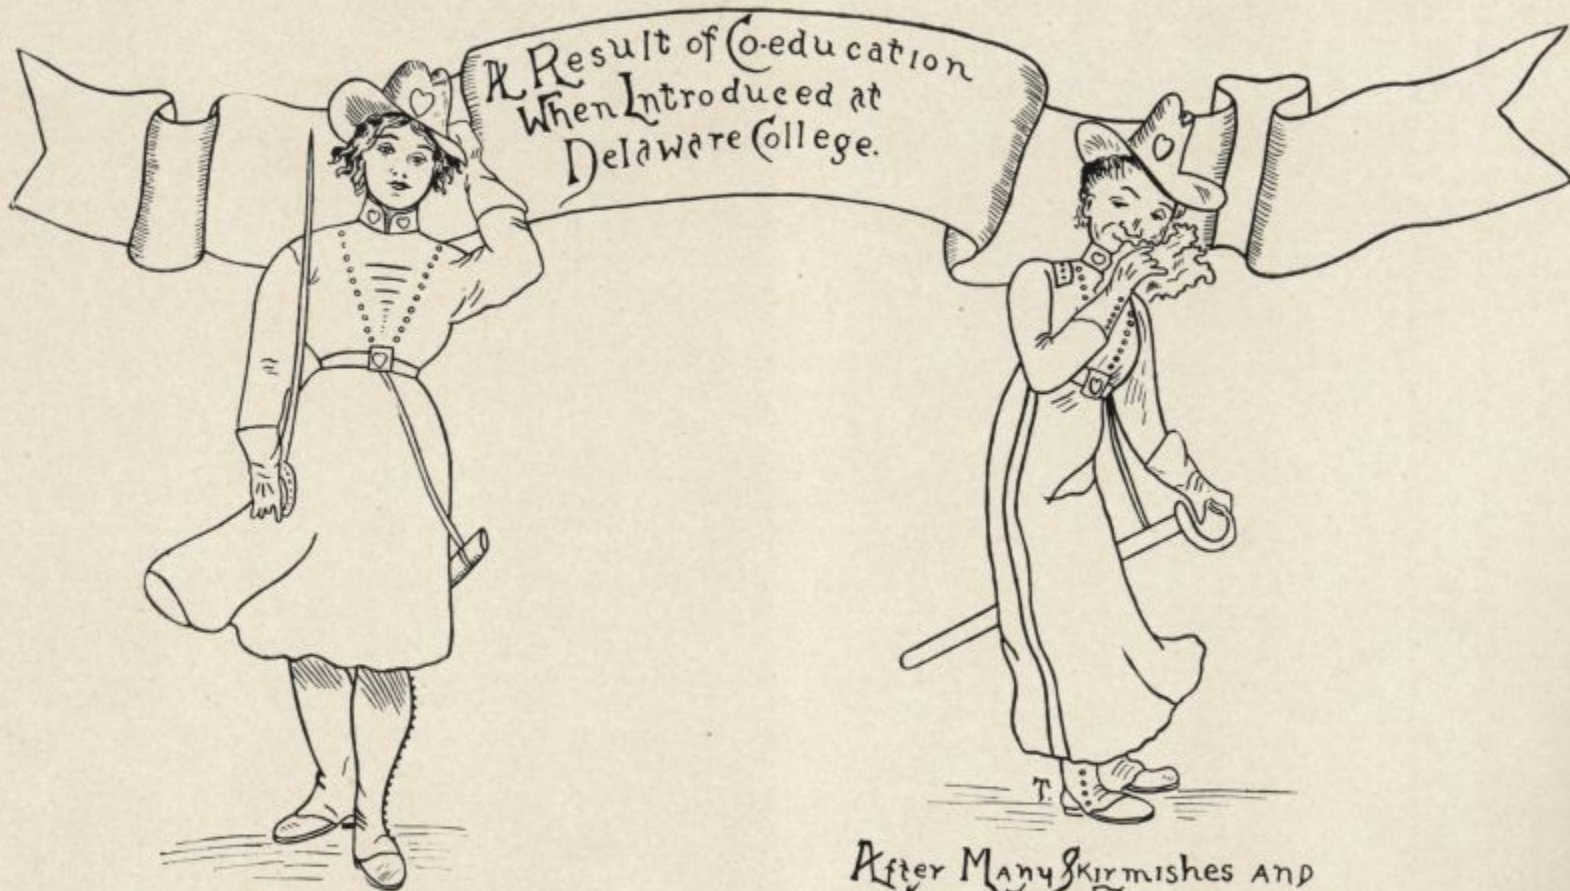 A Result of Co-education
When Introduced at
Delaware College.
T.
After Many Skirmishes and